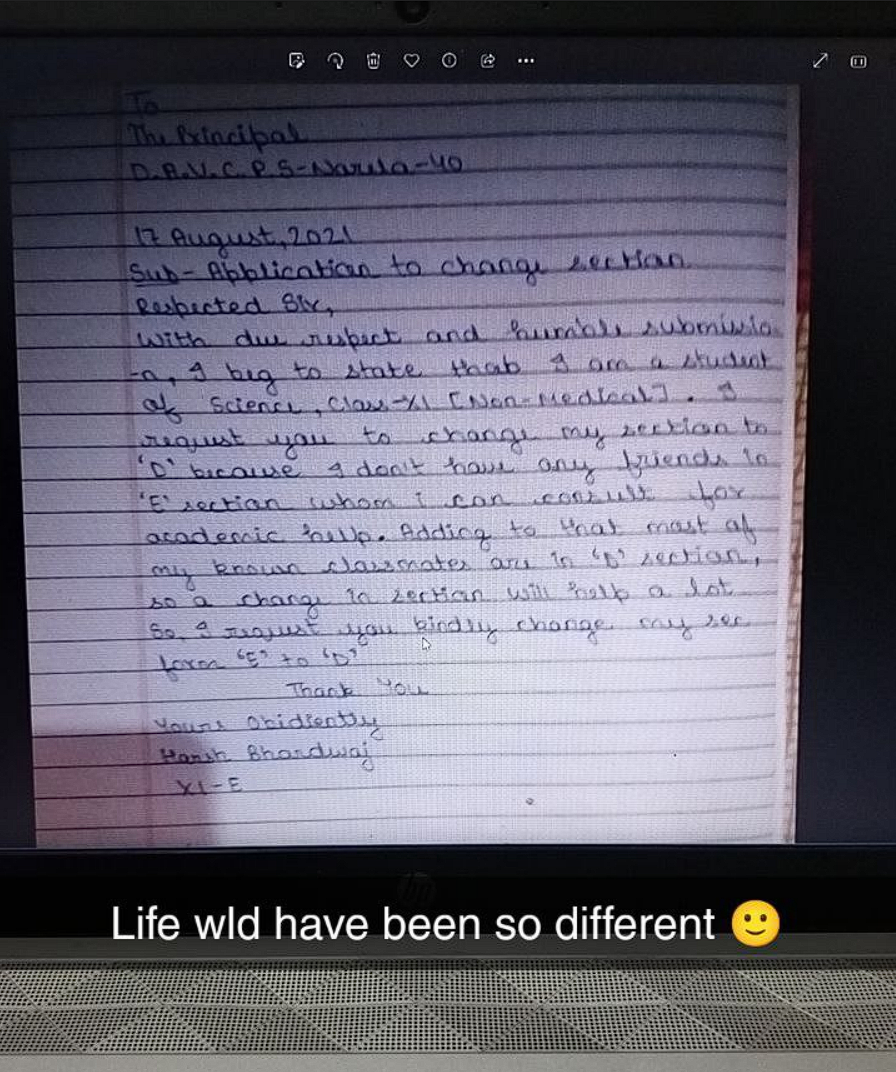 To
The Principal
D.A.V.C.P.S-Narela-40
17 August, 2021
Sub- Application to change section
Respected Sir,
With due respect and humble submissio
-n, I beg to state that I am a student
of Science, Class-XI [Non-Medical]. I
request you to change my section to
'D' because I don't have any friends in
'E' section whom i can consult for
academic help. Adding to that most of
my known classmates are in 'D' section,
so a change in section will help a lot
So, I request you kindly change my sec
form "E" to 'D'
Thank You
Yours Obidiently
Harsh Bhardwaj
XI-E
hp
Life wld have been so different 🙂